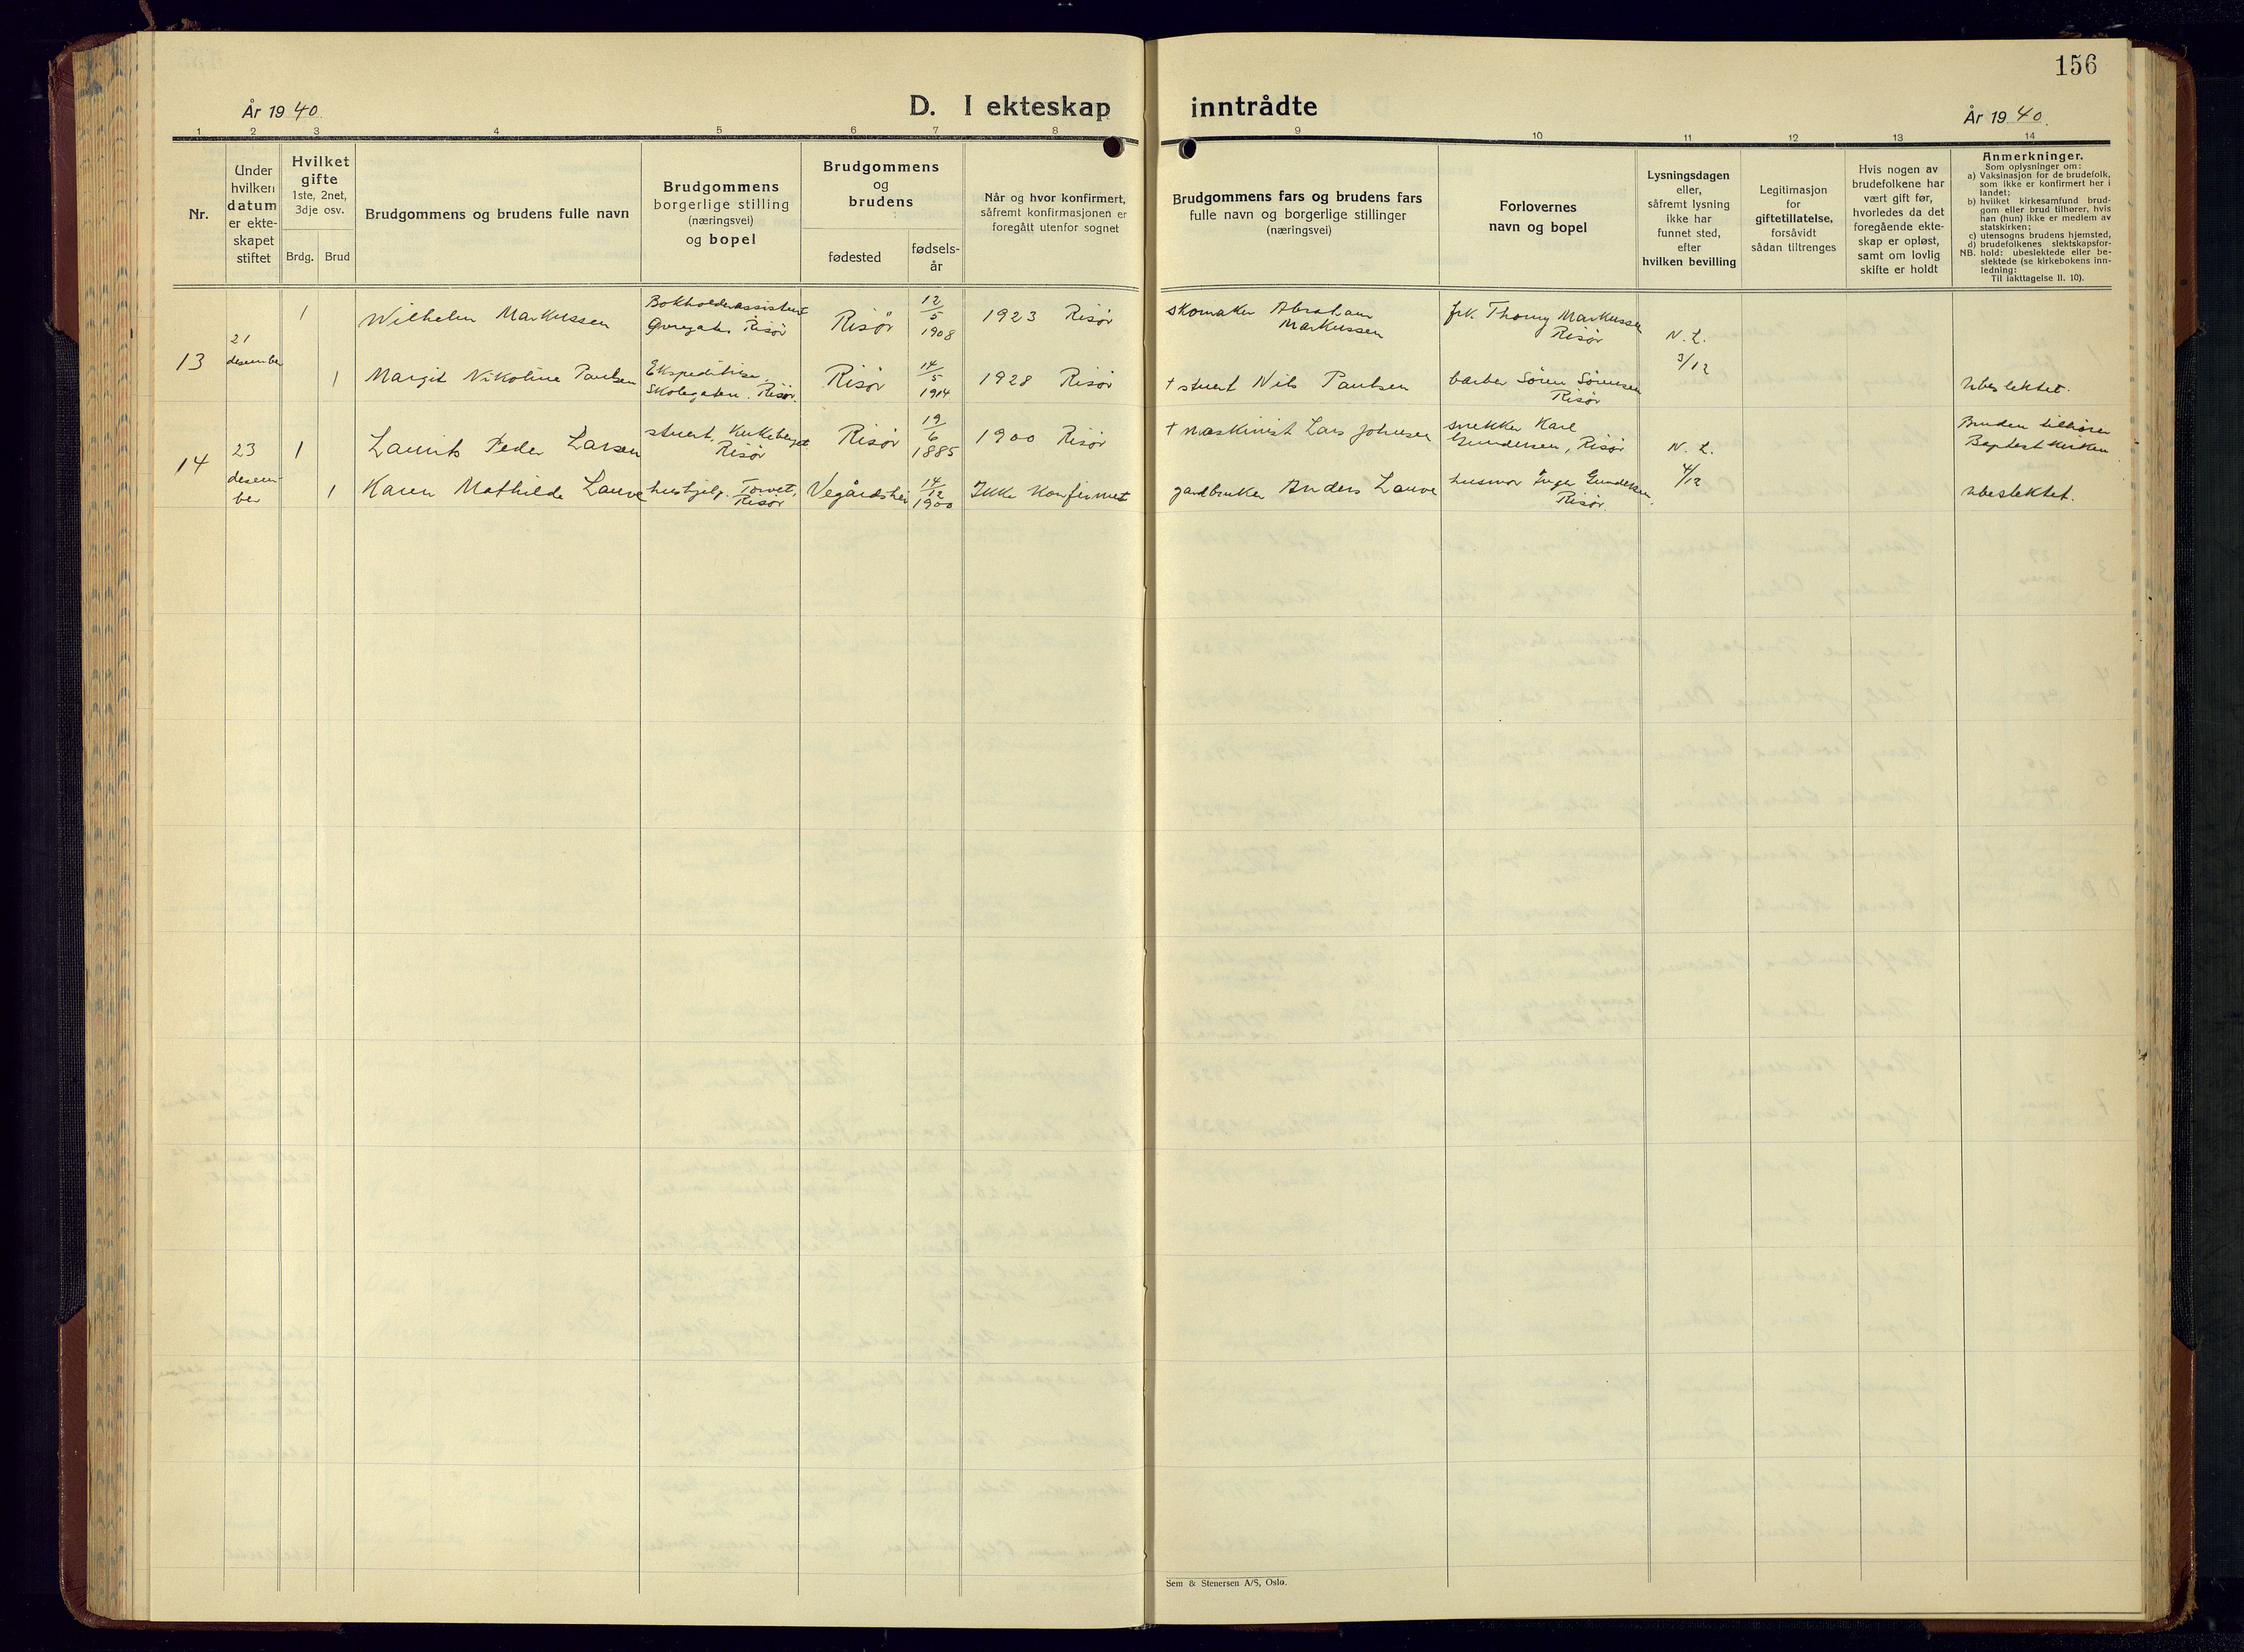 156
År 1940.
D. I ekteskap inntrådte
År 1940.
1 2 3 4 5 6 7 8 9 10 11 12 13 14
Nr.
Under
hvilken
datum
er ekte-
skapet
stiftet
Hvilket
gifte
1ste, 2net,
3dje osv.
Brdg. Brud
Brudgommens og brudens fulle navn
Brudgommens
borgerlige stilling
(næringsvei)
og bopel
Brudgommens
og
brudens
fødested
fødsels-
år
Når og hvor konfirmert,
såfremt konfirmasjonen er
foregått utenfor sognet
Brudgommens fars og brudens fars
fulle navn og borgerlige stillinger
(næringsvei)
Forlovernes
navn og bopel
Lysningsdagen
eller,
såfremt lysning
ikke har
funnet sted,
efter
hvilken bevilling
Legitimasjon
for
giftetillatelse,
forsåvidt
sådan tiltrenges
Hvis nogen av
brudefolkene har
vært gift før,
hvorledes da det
foregående ekte-
skap er opløst,
samt om lovlig
skifte er holdt
Anmerkninger.
Som oplysninger om:
a) Vaksinasjon for de brudefolk,
som ikke er konfirmert her i
landet;
b) hvilket kirkesamfund brud-
gom eller brud tilhører, hvis
han (hun) ikke er medlem av
statskirken;
c) utensogns brudens hjemsted,
d) brudefolkenes slektskapsfor-
NB. hold: ubeslektede eller be-
slektede (se kirkebokens inn-
ledning:
Til iakttagelse II. 10).
13
21
desember
1
Wilhelm Markussen
Bokholderassistent
Øvregate Risør
Risør
12/5
1908
1923 Risør
skomaker Abraham
Markussen
frk. Thorny Markussen
Risør
N. L.
3/12
1
Margit Nikoline Paulsen
Ekspeditrise,
Skolegaten. Risør.
Risør
14/5
1914
1928 Risør
† stuert Nils Paulsen
barber Søren Sørensen
Risør
Ubeslektet.
14
23
desem-
ber
1
Laurits Peder Larsen
stuert, Kirkeberget
Risør
Risør
19/6
1885
1900 Risør
† maskinist Lars Johnsen
snekker Karl
Gundersen, Risør
N. L.
4/12
Bruden tilhører
Baptestkirken
1
Karen Mathilde Lauve
hushjelp. Torvet,
Risør
Vegårdshei
14/12
1900
Ikke konfirmert
gardbruker Anders Lauve
husmor Inger Gundersen
Risør.
ubeslektet.
Sem & Stenersen A/S, Oslo.